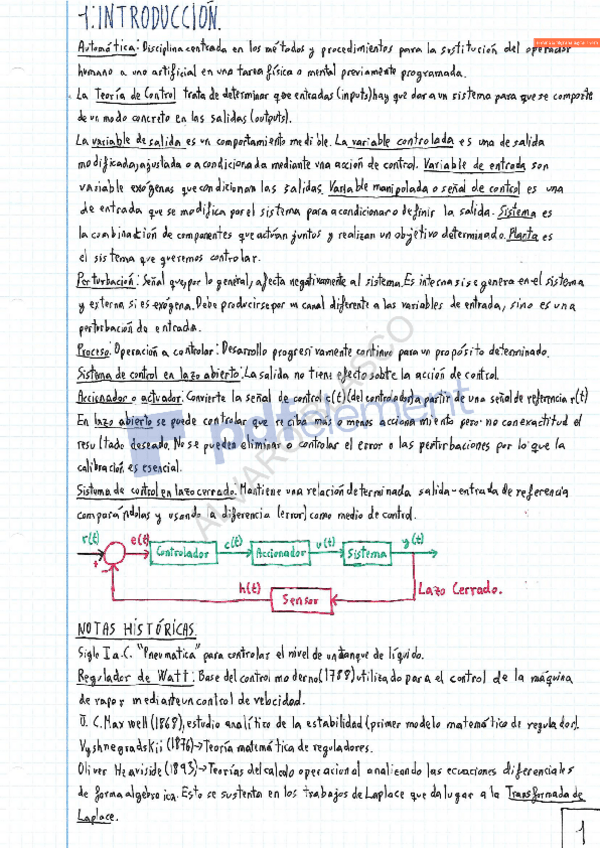 1: INTRODUCCIÓN.
Automática: Disciplina centrada en los métodos y procedimientos para la sustitución del operador
humano a uno artificial en una tarea física o mental previamente programada.
La Teoría de Control trata de determinar que entradas (inputs) hay que dar a un sistema para que se comporte
de un modo concreto en las salidas (outputs).
La variable de salida es un comportamiento medible. La variable controlada es una de salida
modificada, ajustada o acondicionada mediante una acción de control. Variable de entrada son
variable exógenas que condicionan las salidas. Variable manipulada o señal de control es una
de entrada que se modifica por el sistema para acondicionar o definir la salida. Sistema es
la combinación de componentes que actúan juntos y realizan un objetivo determinado. Planta es
el sistema que queremos controlar.
Perturbación: Señal que, por lo general, afecta negativamente al sistema. Es interna si se genera en el sistema
y externa si es exógena. Debe producirse por un canal diferente a las variables de entrada, sino es una
perturbación de entrada.
Proceso: Operación a controlar: Desarrollo progresivamente continuo para un propósito determinado.
Sistema de control en lazo abierto: La salida no tiene efecto sobre la acción de control.
Accionador o actuador: Convierte la señal de control c(t) (del controlador) a partir de una señal de referencia r(t)
En lazo abierto se puede controlar que reciba más o menos accionamiento pero no con exactitud el
resultado deseado. No se pueden eliminar o controlar el error o las perturbaciones por lo que la
calibración es esencial.
Sistema de control en lazo cerrado: Mantiene una relación determinada salida-entrada de referencia
comparándolas y usando la diferencia (error) como medio de control.
r(t) e(t) Controlador c(t) Accionador u(t) Sistema y(t)
+
h(t) Sensor Lazo Cerrado.
NOTAS HISTÓRICAS.
Siglo I a.C. "Pneumatica" para controlar el nivel de un tanque de líquido.
Regulador de Watt: Base del control moderno (1788) utilizado para el control de la máquina
de vapor mediante un control de velocidad.
J. C. Maxwell (1868), estudio analítico de la estabilidad (primer modelo matemático de regulador).
Vyshnegradskii (1876) → Teoría matemática de reguladores.
Oliver Heaviside (1893) → Teorías del calculo operacional analizando las ecuaciones diferenciales
de forma algebraica. Esto se sustenta en los trabajos de Laplace que da lugar a la Transformada de
Laplace.
1
pdfelement